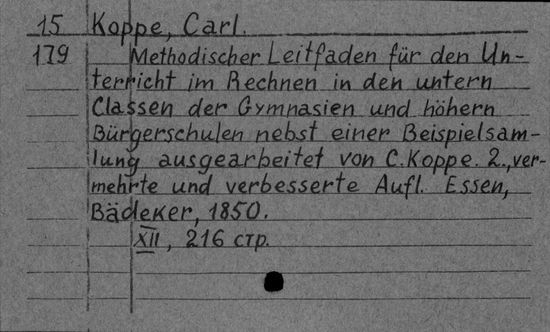 15 Koppe, Carl.
179 Methodischer Leitfaden für den Un-
terricht im Rechnen in den untern
Classen der Gymnasien und höhern
Bürgerschulen nebst einer Beispielsam-
lung ausgearbeitet von C. Koppe. 2., ver-
mehrte und verbesserte Aufl. Essen,
Bädeker, 1850.
XII, 216 стр.